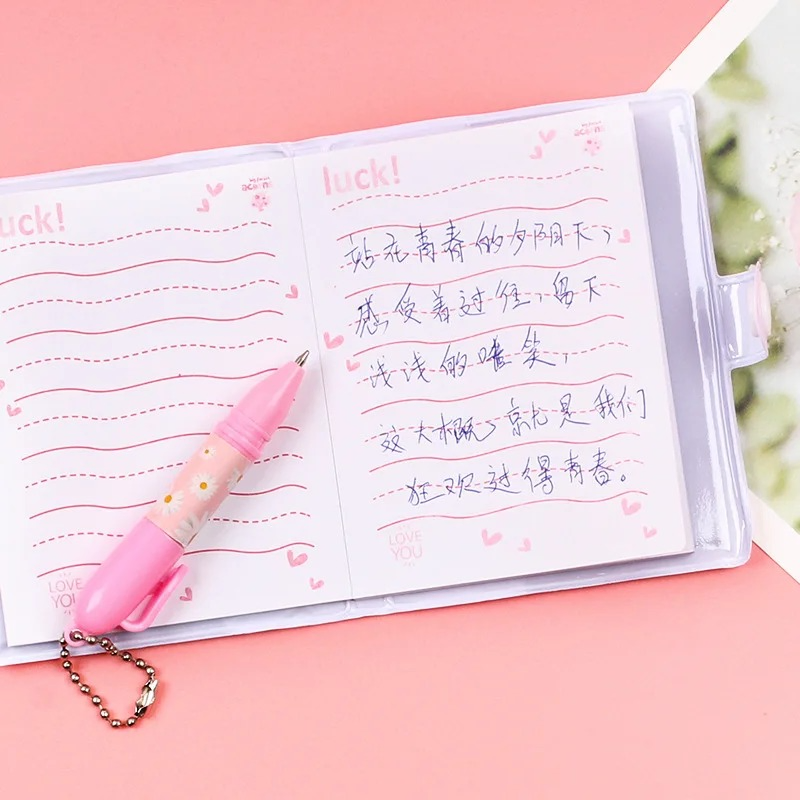 uck!
luck!
站在青春的夕阴天,
感受着过往,乌天
浅浅的嘻笑,
这大概,就是我们
狂欢过得青春。
LOVE
YOU
LOVE
YOU